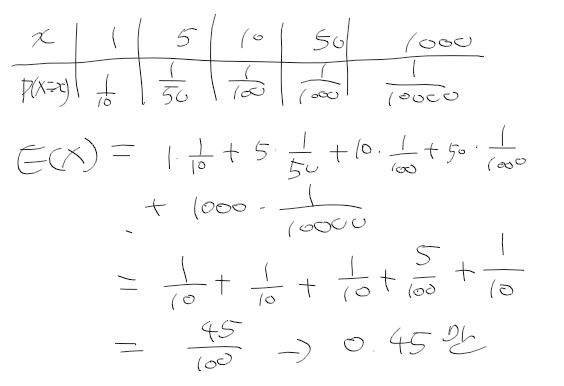 x | 1 | 5 | 10 | 50 | 1000
P(X=x) | 1/10 | 1/50 | 1/100 | 1/1000 | 1/10000
E(X) = 1·1/10 + 5·1/50 + 10·1/100 + 50·1/1000
+ 1000·1/10000
= 1/10 + 1/10 + 1/10 + 5/100 + 1/10
= 45/100 → 0.45만